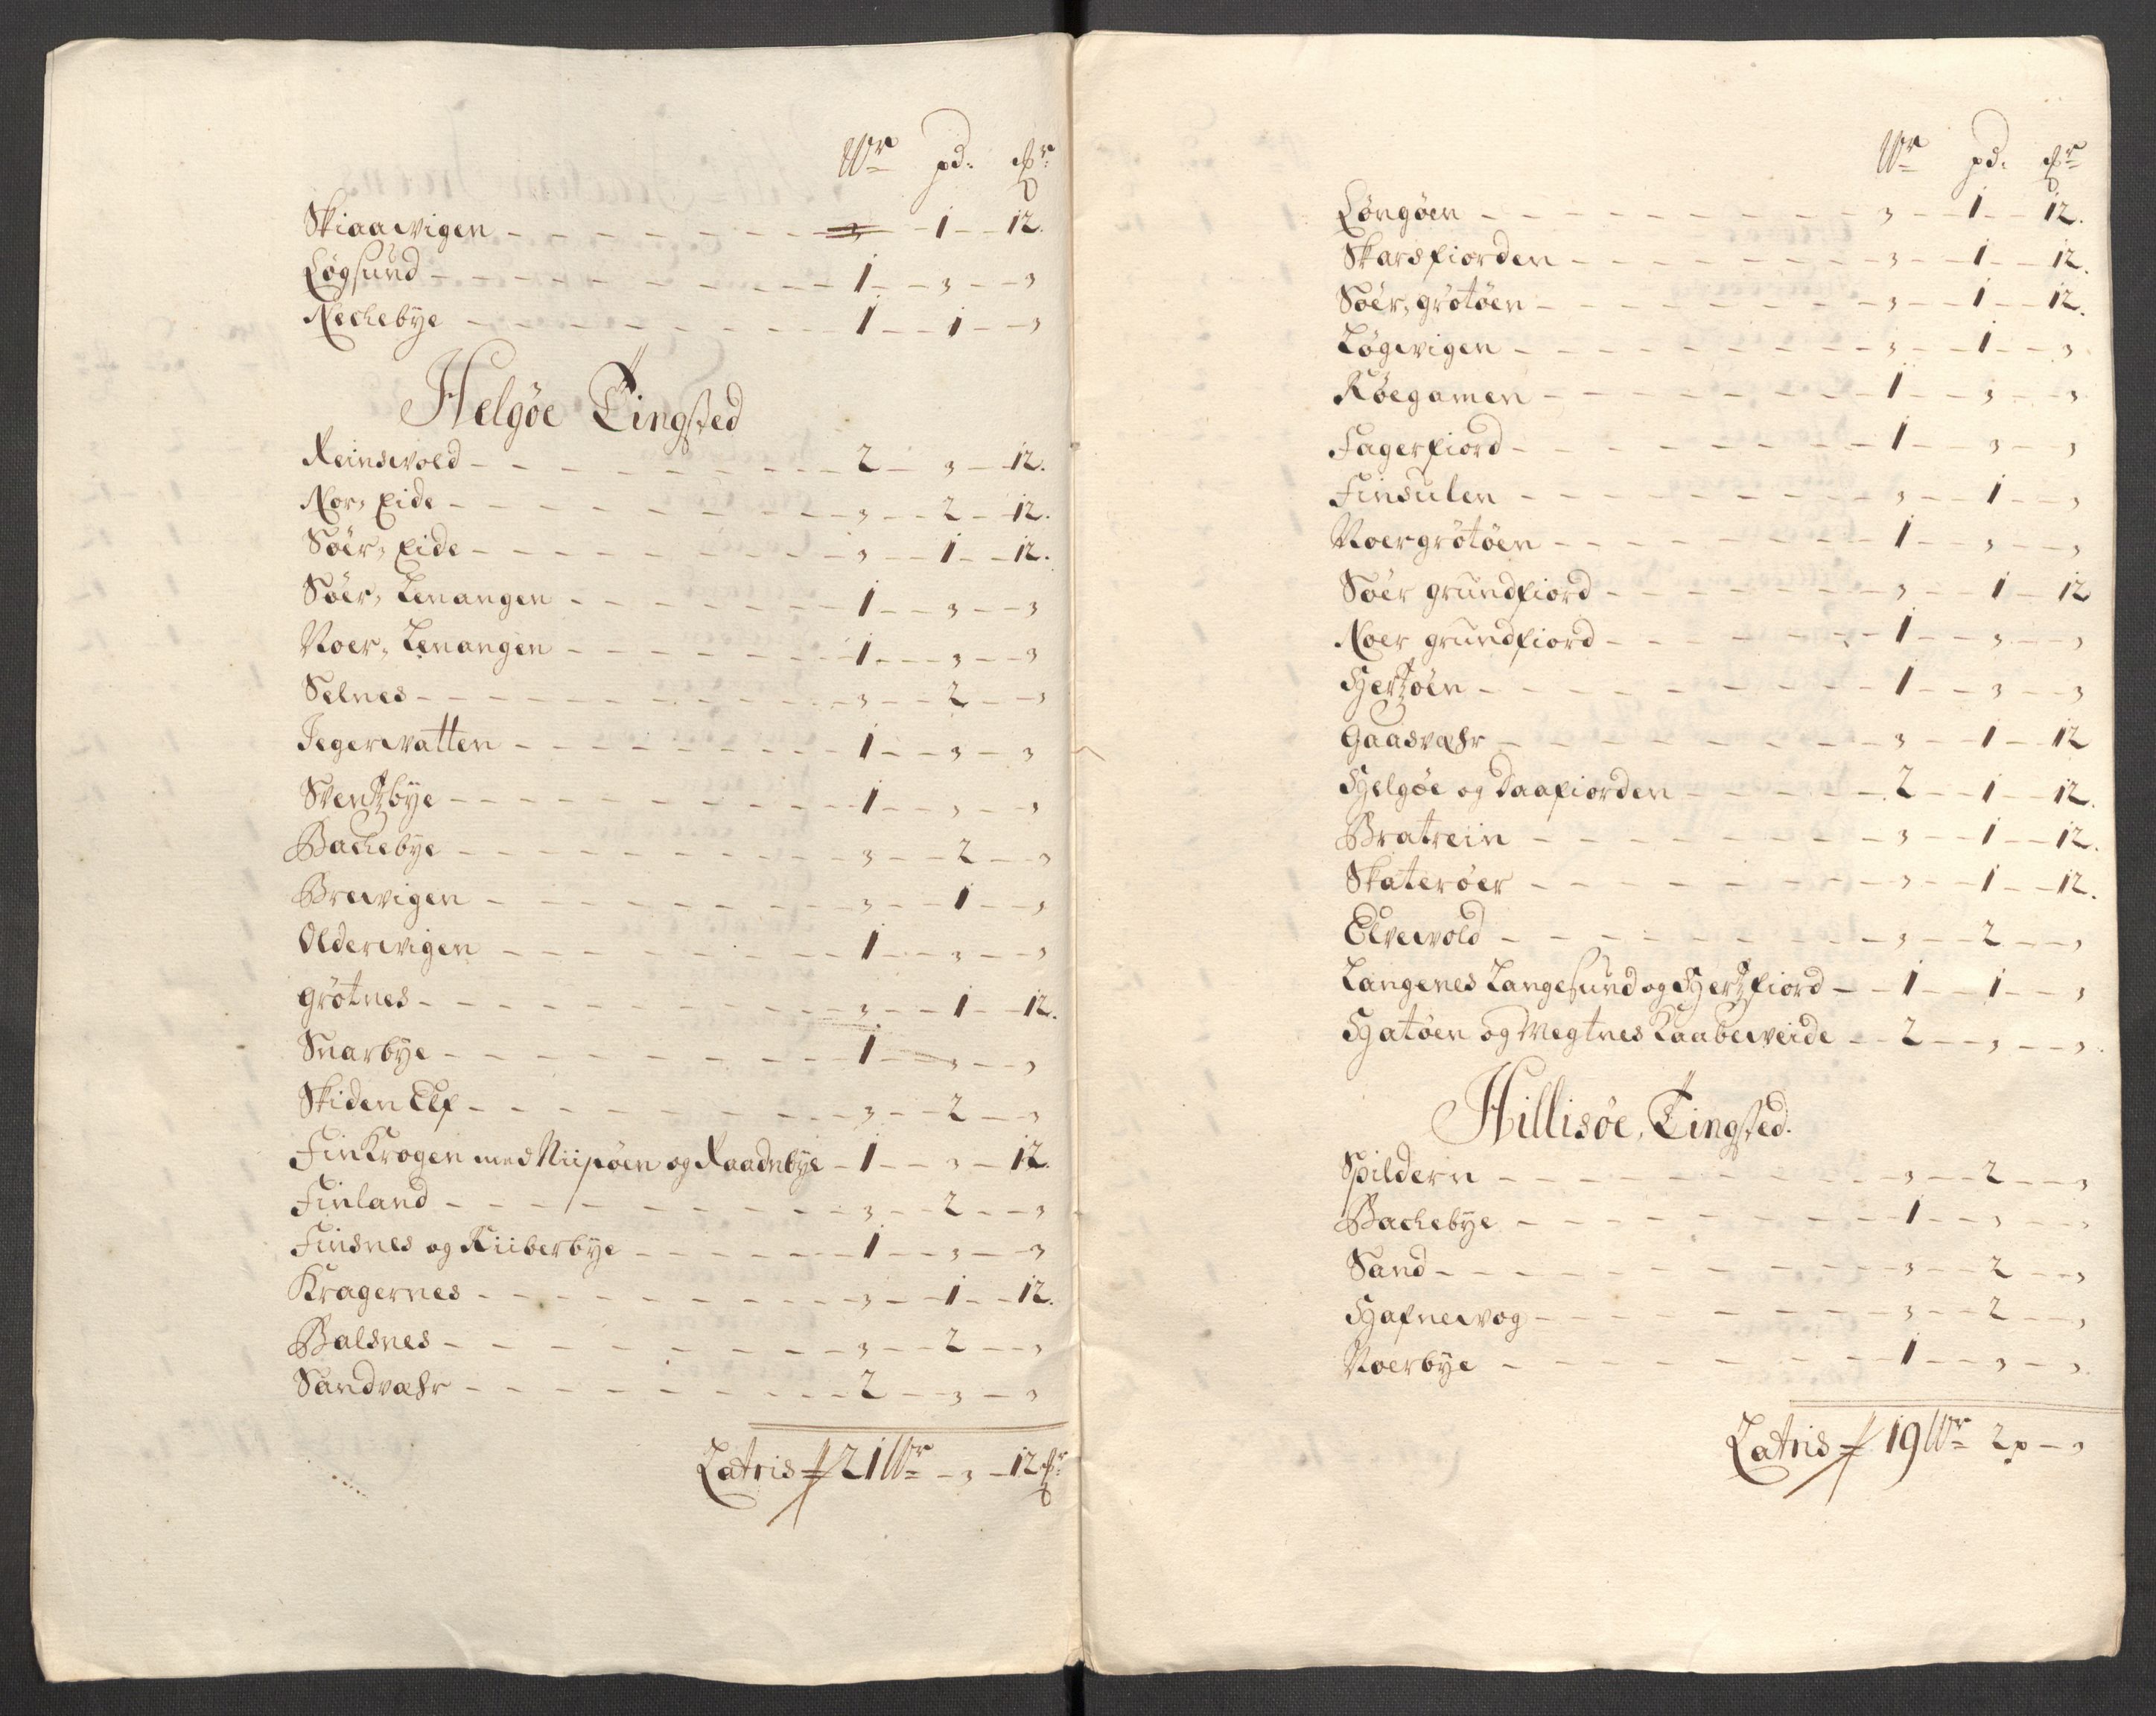 Wr pd. Pr
Skiaawigen - - - 1 - 12.
Løgsund - 1 - , - ,
Nechebye - 1 - 1 - ,
Helgøe Tingsted
Reinswold - 2 - , - 12.
Nor, Eide - , - 2 - 12.
Søer, Eide - , - 1 - 12.
Søer, Lenangen - 1 - , - ,
Noer, Lenangen - 1 - , - ,
Selnes - , - 2 - ,
Jegerwatten - 1 - , - ,
Sventzbye - 1 - , - ,
Bachebye - , - 2 - ,
Brewigen - , - 1 - ,
Olderwigen - 1 - , - ,
Grøtnes - , - 1 - 12.
Snarbye - 1 - , - ,
Skiden Elf - , - 2 - ,
Finkrogen med Niipøen og Raadnbye - 1 - , - 12.
Finland - , - 2 - ,
Finsnes og Kiiberbye - 1 - , - ,
Kragernes - , - 1 - 12.
Balsnes - , - 2 - ,
Sandvæhr - 2 - , - ,
Latris 21 Wr - , - 12 Pr
Wr pd. Pr
Løngøen - , - 1 - 12.
Skarsfiorden - , - 1 - 12.
Søer, grøtøen - , - 1 - 12.
Løgwigen - , - 1 - ,
Røegamen - 1 - , - ,
Fagerfiord - 1 - , - ,
Finsulen - , - 1 - ,
Noergrøtøen - 1 - , - ,
Søer grundfiord - , - 1 - 12
Noer grundfiord - 1 - , - ,
Hertzøen - 1 - , - ,
Gaasvæhr - , - 1 - 12
Helgøe og Daafiorden - 2 - 1 - 12.
Bratrein - , - 1 - 12.
Skaterøer - , - 1 - 12.
Elvewold - , - 2 - ,
Langenes Langesund og Hertzfiord - 1 - 1 - ,
Hatøen og Wegtnes Kaabeweide - 2 - , - ,
Hillisøe, Tingsted.
Spildern - , - 2 - ,
Bachebye - 1 - , - ,
Sand - , - 2 - ,
Hafnewog - , - 2 - ,
Noerbye - 1 - , - ,
Latris 19 Wr 2 p - ,